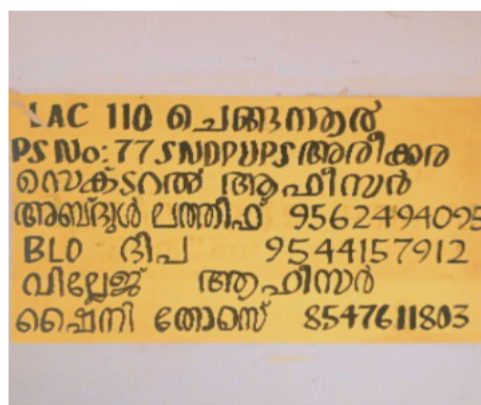 LAC 110 ചെങ്ങന്നൂര്
PS No: 77 SNDPUPS അരീക്കര
സെക്ടറൽ ആഫീസർ
അബ്ദുൾ ലത്തീഫ് 9562494095
BLO ദീപ 9544157912
വില്ലേജ് ആഫീസർ
ഷൈനി തോസെ് 8547611803